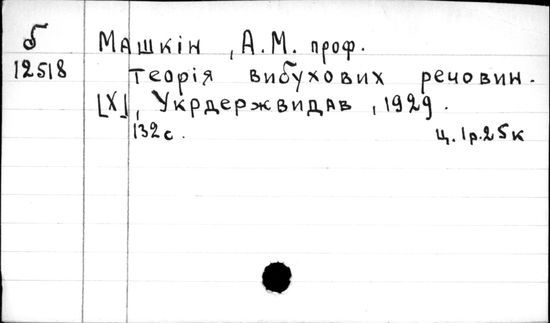 Б Машкін, А.М. проф.
12518 Теорія вибухових речовин.
[X], Укрдержвидав, 1929.
132с. ц. 1р.25к